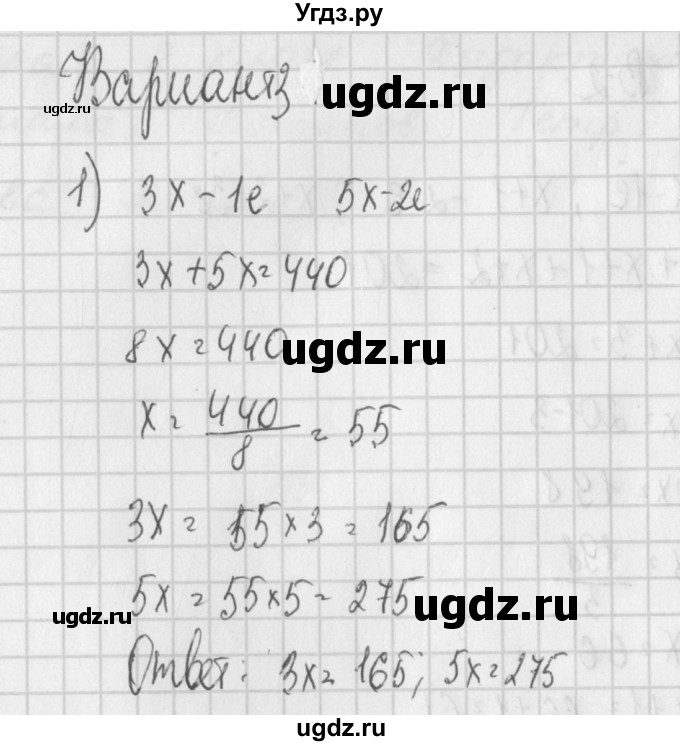 Угдз.ру
Вариант 3
ugdz.ru
ugdz.ru
1) 3x - 1е 5x - 2е
3x + 5x = 440
8x = 440
ugdz.ru
x = 440/8 = 55
3x = 55 × 3 = 165
5x = 55 × 5 = 275
ugdz.ru
ugdz.ru
Ответ: 3x = 165; 5x = 275
ugdz.ru